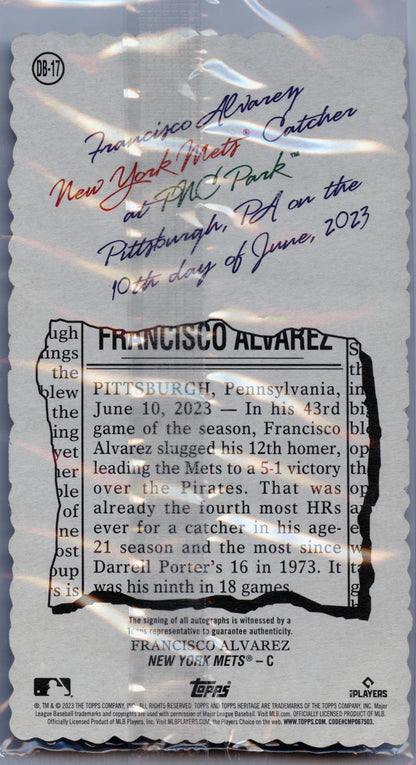 DB-17
Francisco Alvarez
New York Mets® Catcher
at PNC Park™
Pittsburgh, PA on the
10th day of June, 2023
ugh
FRANCISCO ALVAREZ
S
ings
th
the
PITTSBURGH, Pennsylvania,
in
blew
June 10, 2023 — In his 43rd
big
the
game of the season, Francisco
blo
ing
Alvarez slugged his 12th homer,
op
yet
leading the Mets to a 5-1 victory
th
her
over the Pirates. That was
op
ple
already the fourth most HRs
as
of
ever for a catcher in his age-
e
one
21 season and the most since
w
ost
Darrell Porter's 16 in 1973. It
th
oup
was his ninth in 18 games.
g
rs is
The signing of all autographs is witnessed by a
Topps representative to guarantee authenticity.
FRANCISCO ALVAREZ
NEW YORK METS® – C
Topps
PLAYERS
®, TM & © 2023 THE TOPPS COMPANY, INC. ALL RIGHTS RESERVED. TOPPS AND TOPPS HERITAGE ARE TRADEMARKS OF THE TOPPS COMPANY, INC. Major
League Baseball trademarks and copyrights are used with permission of Major League Baseball. Visit MLB.com. OFFICIALLY LICENSED PRODUCT OF MLB.
Officially Licensed Product of MLB Players, Inc. Visit MLBPLAYERS.com, the Players Choice on the web. WWW.TOPPS.COM. CODE#CMP067503.